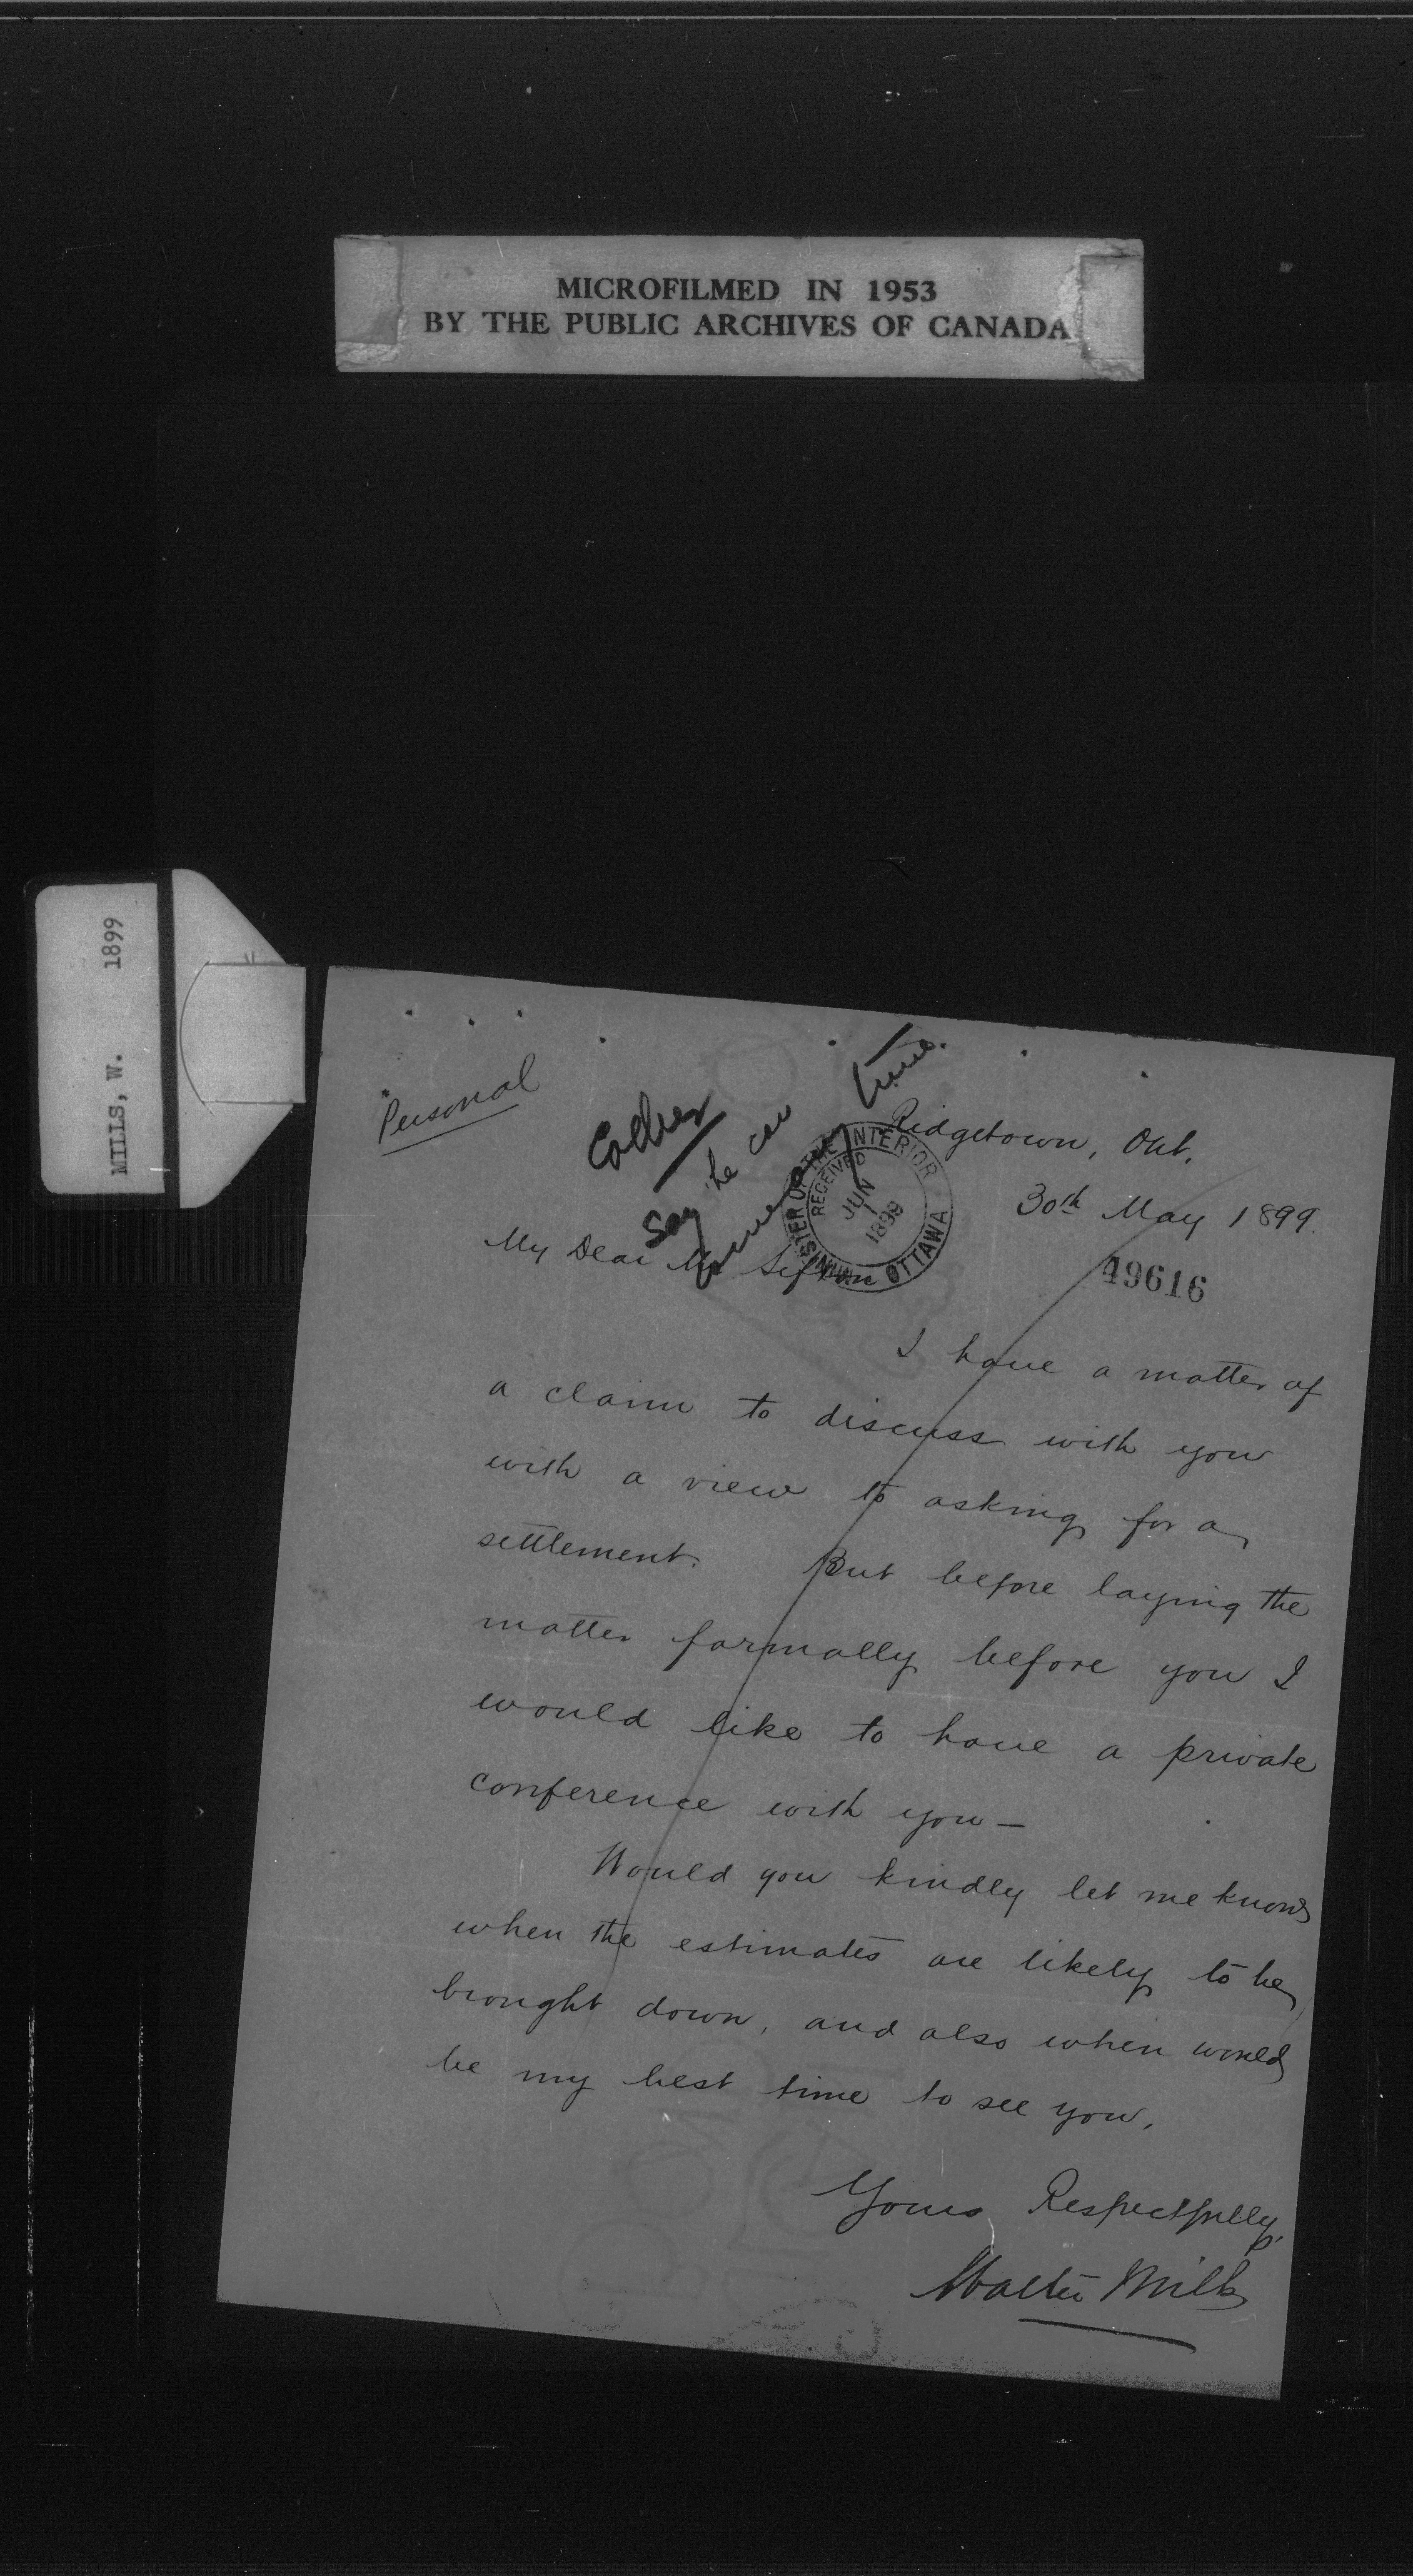 MICROFILMED IN 1953
BY THE PUBLIC ARCHIVES OF CANADA
MILLS, W. 1899
Personal
Say he can
come any time.
MINISTER OF THE INTERIOR
RECEIVED
JUN
1
1899
OTTAWA
Ridgetown, Ont.
30th May 1899.
49616
My Dear Mr Sifton
I have a matter of
a claim to discuss with you
with a view to asking for a
settlement. But before laying the
matter formally before you I
would like to have a private
conference with you —
Would you kindly let me know
when the estimates are likely to be
brought down, and also when would
be my best time to see you,
Yours Respectfully,
Walter Mills